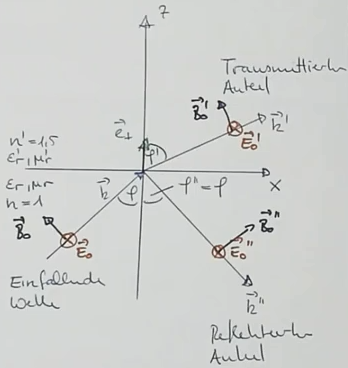 z
Transmittierter
Anteil
B₀'
k'
E₀'
e⊥
φ'
n' = 1,5
εr', μr'
εr, μr
n = 1
k
φ
φ'' = φ
x
B₀
E₀
B₀''
E₀''
Einfallende
Welle
k''
Reflektierter
Anteil